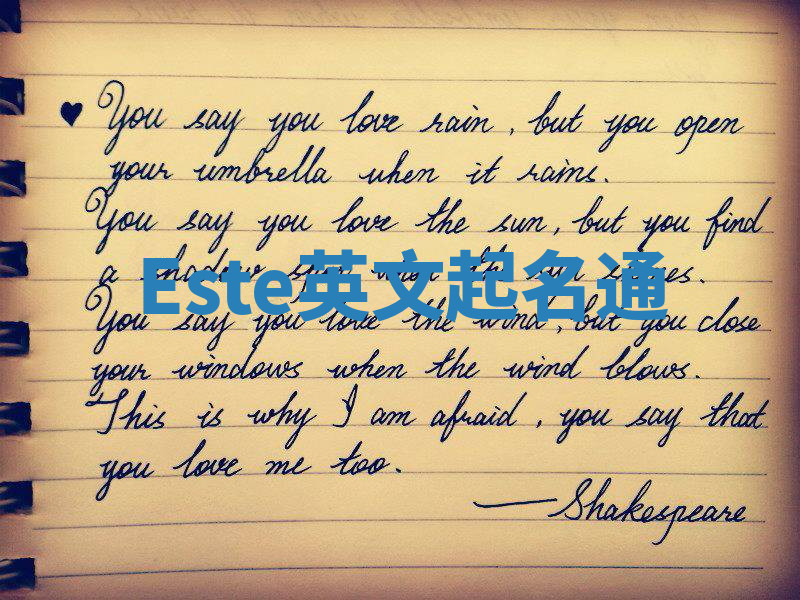 ♥ You say you love rain, but you open
your umbrella when it rains.
You say you love the sun, but you find
a shadow spot when the sun shines.
Este英文起名通
You say you love the wind, but you close
your windows when the wind blows.
This is why I am afraid, you say that
you love me too.
—Shakespeare